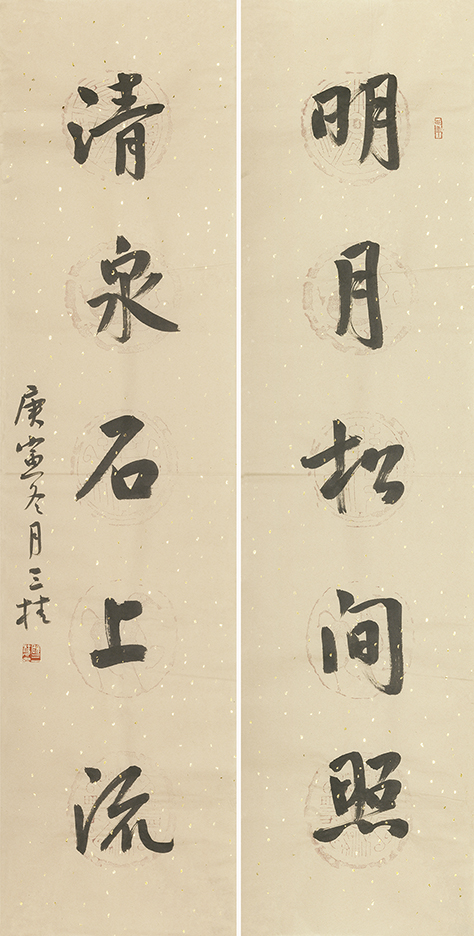 明月松间照
清泉石上流
庚寅冬月三桂